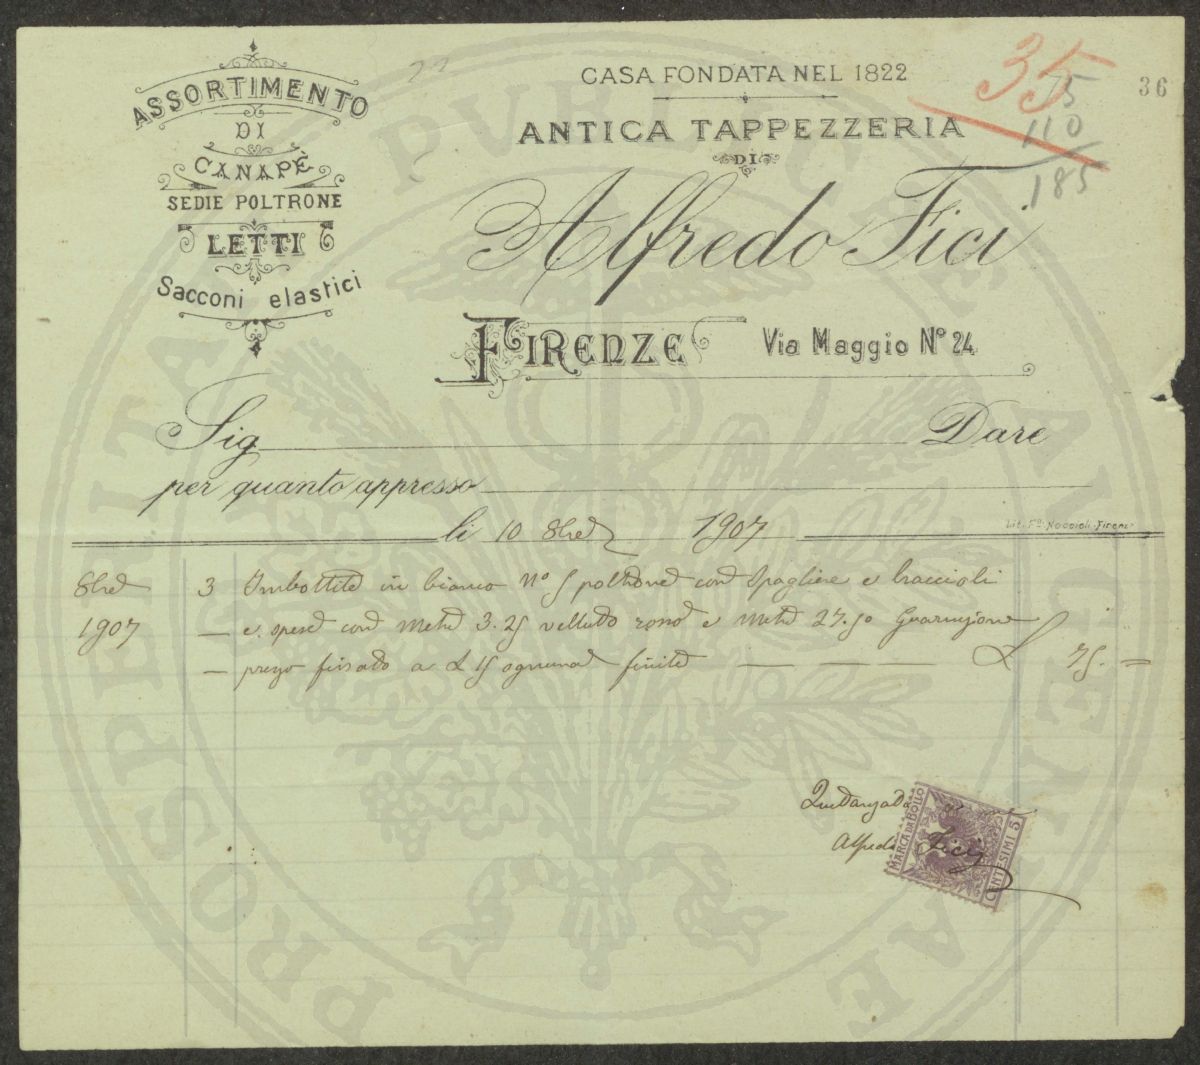 ASSORTIMENTO
DI
CANAPÈ
SEDIE POLTRONE
LETTI
Sacconi elastici
CASA FONDATA NEL 1822
ANTICA TAPPEZZERIA
DI
Alfredo Fici
FIRENZE Via Maggio Nº 24
35
36
75
110
185
Sig Dare
per quanto appresso
li 10 8bre 1907
Lit. F.lli Noccioli-Firenze
8bre 3 Imbottite in bianco Nº 5 poltrone con Spagliere e braccioli
1907 — e spese con Metri 3.25 velluto rosso e Metri 27.50 Guarnizione
— prezzo fissato a £ 15 ognuna finite — — — £ 75. —
Quietanzata
Alfredo Fici
MARCA DA BOLLO
CENTESIMI 5
PROSPERITA PVBLICAE AVGENDAE